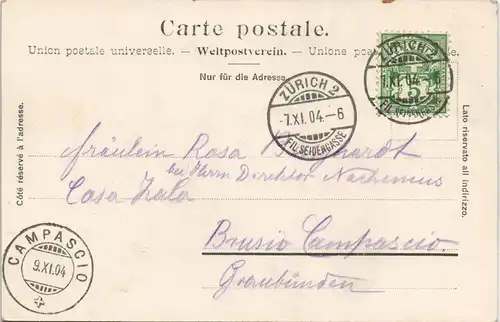 Carte postale.
Union postale universelle. — Weltpostverein. — Unione postale universale.
Nur für die Adresse.
ZÜRICH 2
-7.XI.04.-6
FIL.SEIDENGASSE
ZÜRICH 2
7.XI.04.-6
FIL.SEIDENGASSE
5
Côté réservé à l'adresse.
Lato riservato all indirizzo.
Fräulein Rosa
bei Herrn Direktor Nachenius
Casa Zala
Brusio Campascio
Graubünden
CAMPASCIO
9.XI.04